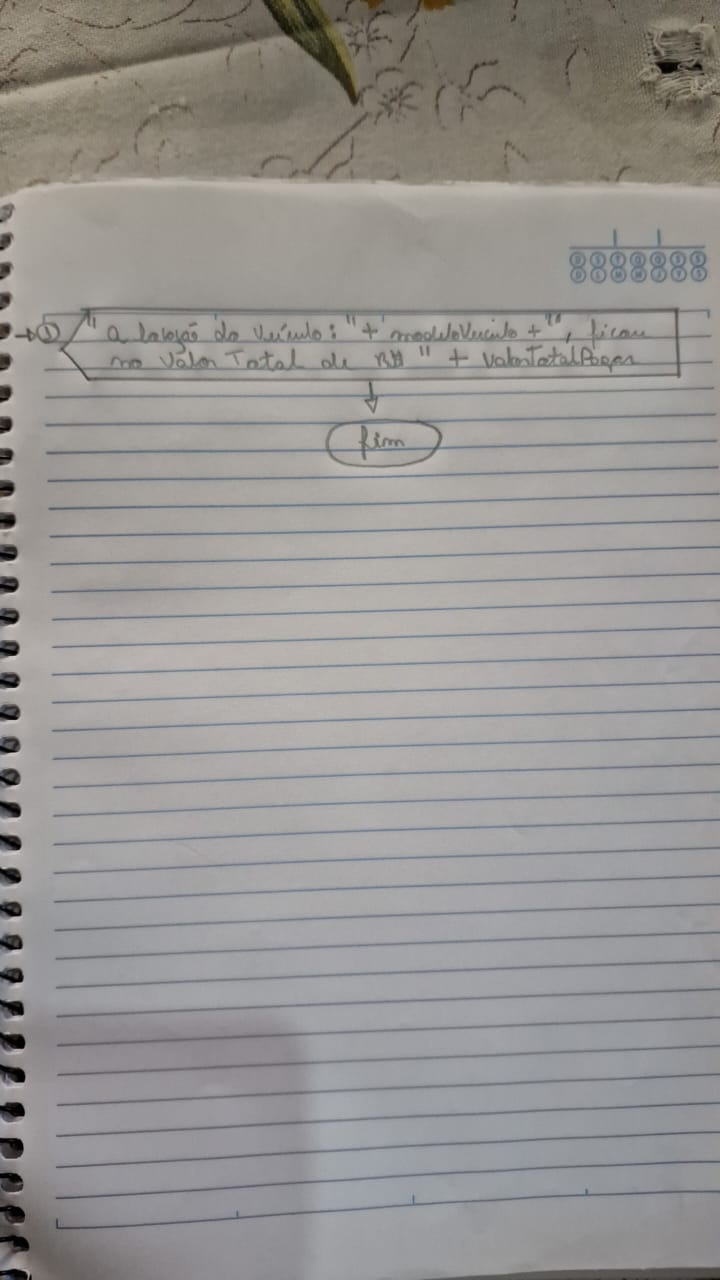 → ① " a locação do veículo: " + modeloVeiculo + " , ficou
no valor Total de R$ " + valorTotalPagar
fim